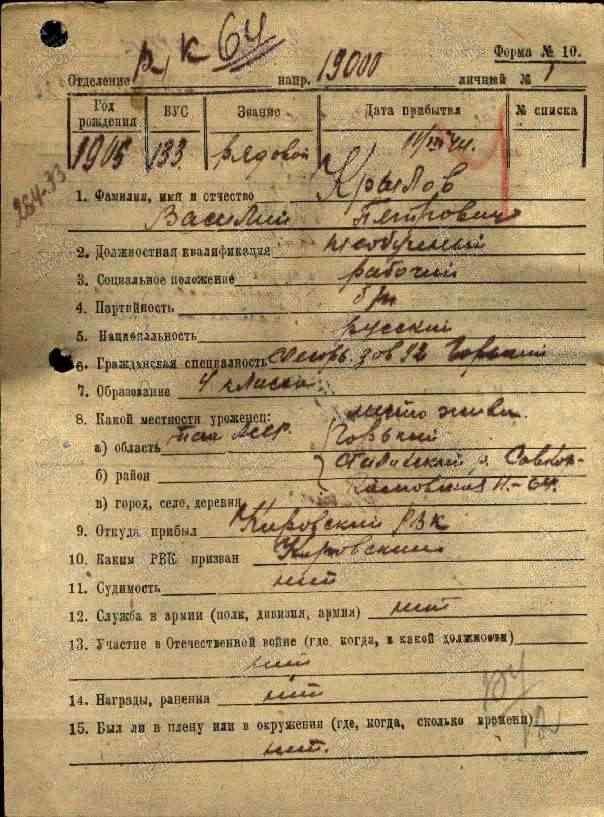 Р, К 64
Форма № 10.
Отделение напр. 19000 личный № 1
Год рождения ВУС Звание Дата прибытия № списка
1905 133 рядовой 11/III 44.
284-33
1. Фамилия, имя и отчество Крылов
Василий Петрович
2. Должностная квалификация необученный
3. Социальное положение рабочий
4. Партийность б/п
5. Национальность русский
6. Гражданская специальность зав 92 Горький
7. Образование 4 класса
8. Какой местности уроженец: место жит.
а) область Тат АССР. Горький
б) район
в) город, село, деревня
9. Откуда прибыл Кировский РВК
10. Каким РВК призван Кировским
11. Судимость нет
12. Служба в армии (полк, дивизия, армия) нет
13. Участие в Отечественной войне (где, когда, в какой должности)
нет
14. Награды, ранения нет
15. Был ли в плену или в окружении (где, когда, сколько времени)
нет.